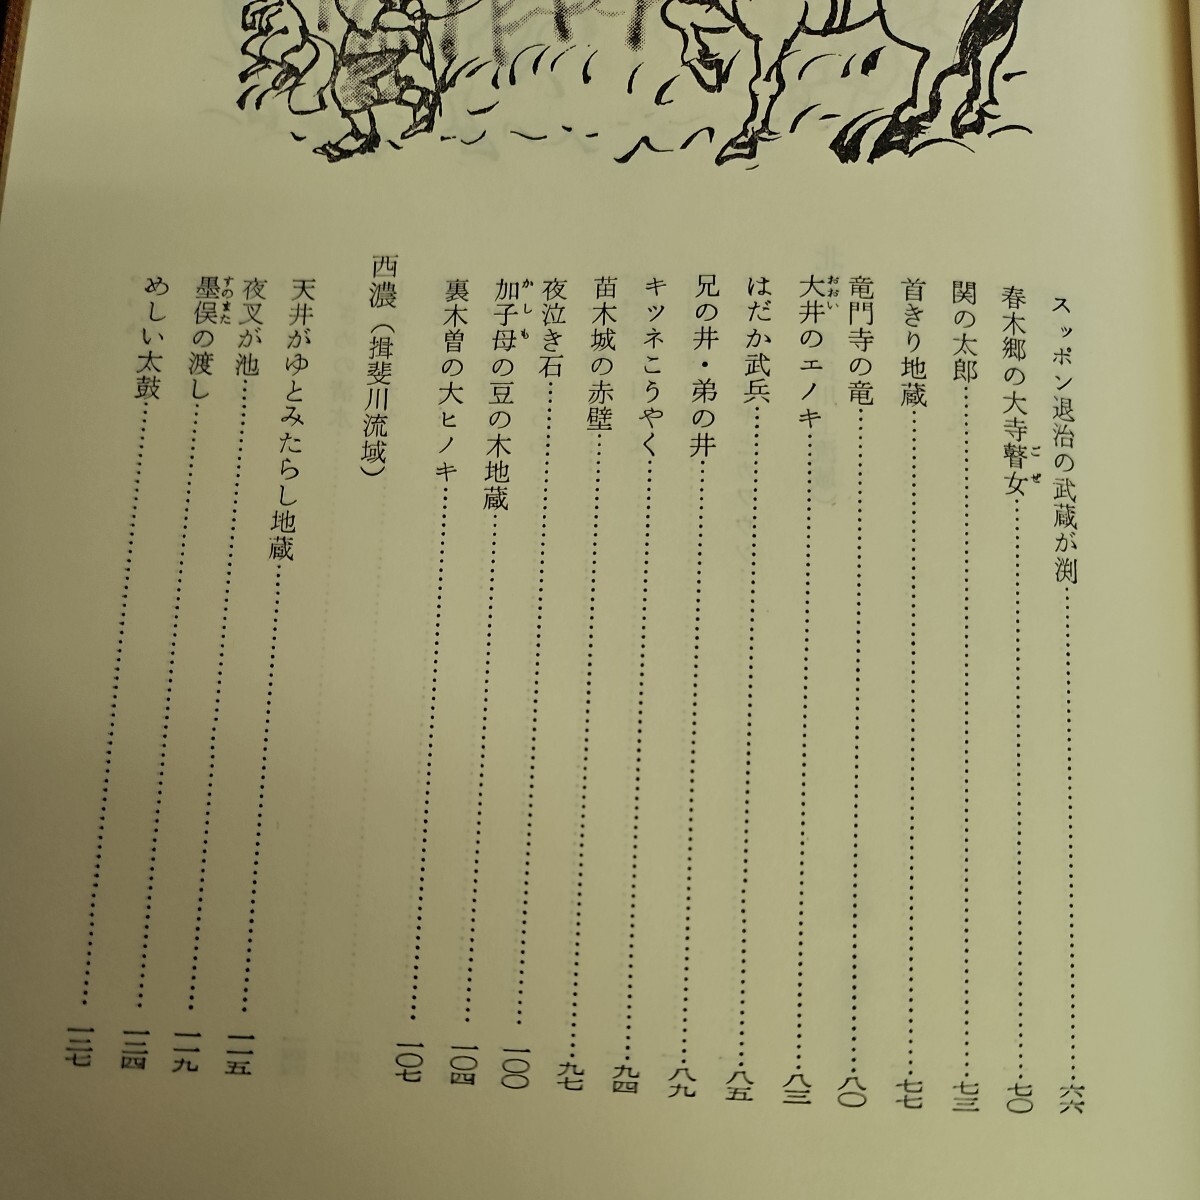 スッポン退治の武蔵が渕……六六
春木郷の大寺瞽女(ごぜ)……七〇
関の太郎……七三
首きり地蔵……七七
竜門寺の竜……八〇
大井(おおい)のエノキ……八三
はだか武兵……八五
兄の井・弟の井……八九
キツネこうやく……九四
苗木城の赤壁……九七
夜泣き石……一〇〇
加子母(かしも)の豆の木地蔵……一〇四
裏木曽の大ヒノキ……一〇七
西濃（揖斐川流域）
天井がゆとみたらし地蔵……一一五
夜叉が池……一一九
墨俣(すのまた)の渡し……一二四
めしい太鼓……一二七